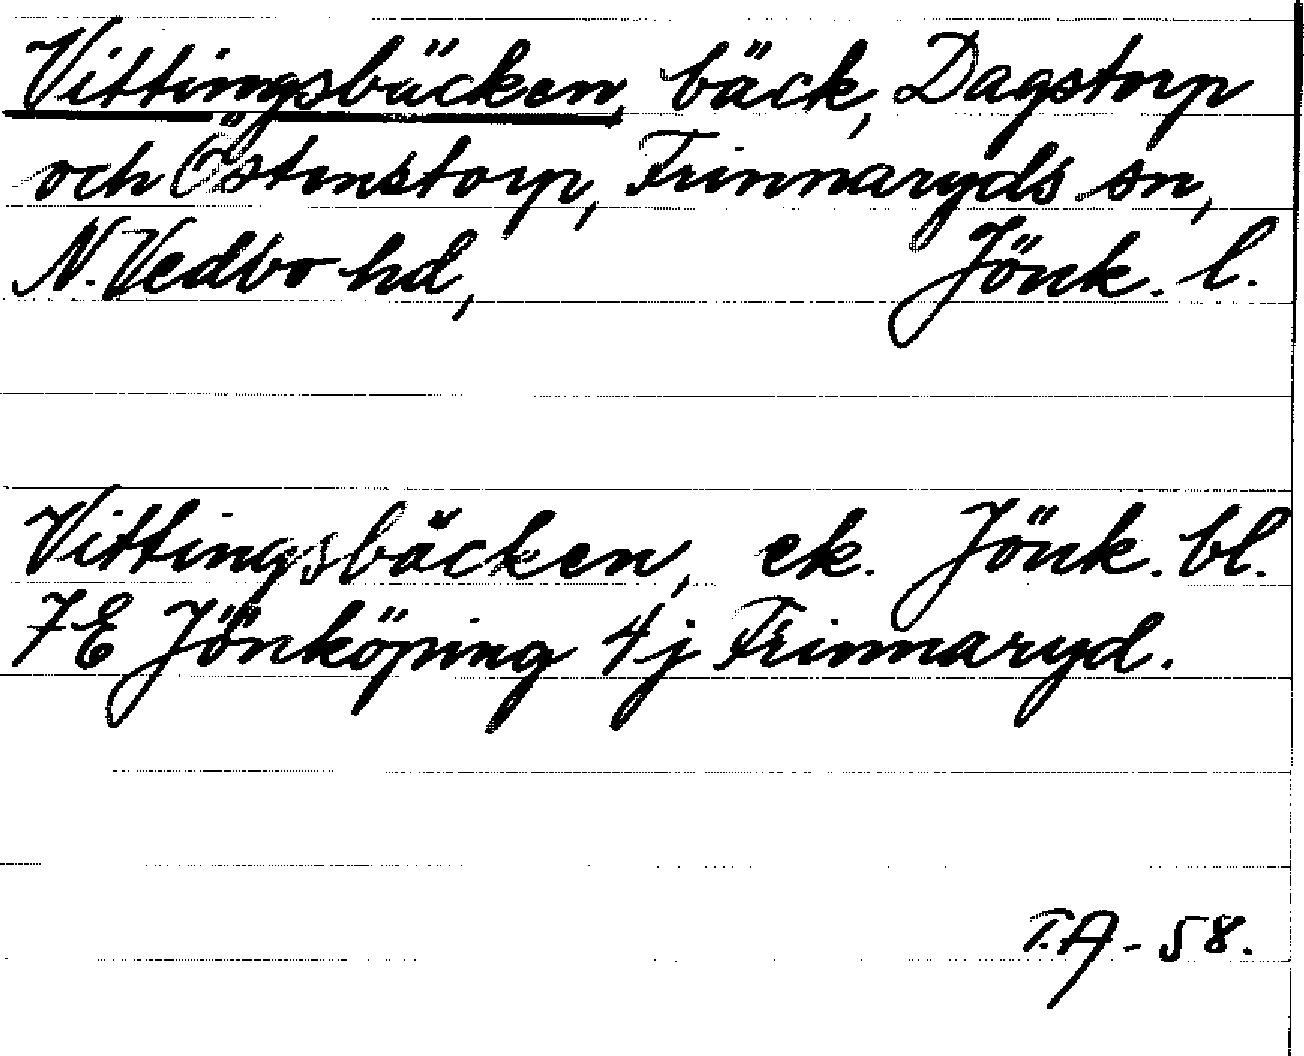 Vittingsbäcken, bäck, Dagstorp
och Östenstorp, Frinnaryds sn,
N. Vedbo hd, Jönk. l.
Vittingsbäcken, ek. Jönk. bl.
7E Jönköping 4j Frinnaryd.
T.A - 58.